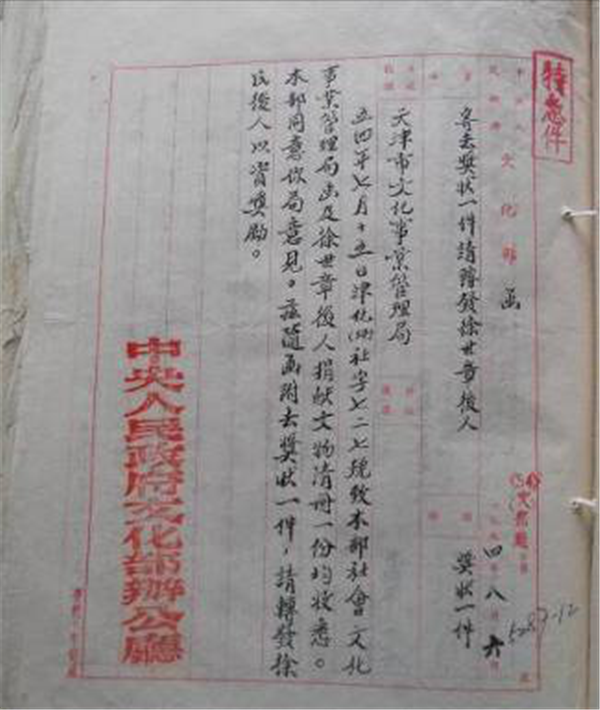 特急件
文化部 函
(54)文
一九五四年八月六日
5287-12
寄去奖状一件請轉發徐世章後人
奖状一件
天津市文化事業管理局
五四年七月十五日津化(54)社字七二七號致本部社會文化
事業管理局函及徐世章後人捐献文物清册一份均收悉。
本部同意你局意見。茲隨函附去奖状一件，請轉發徐
氏後人以資奖勵。
中央人民政府文化部辦公廳